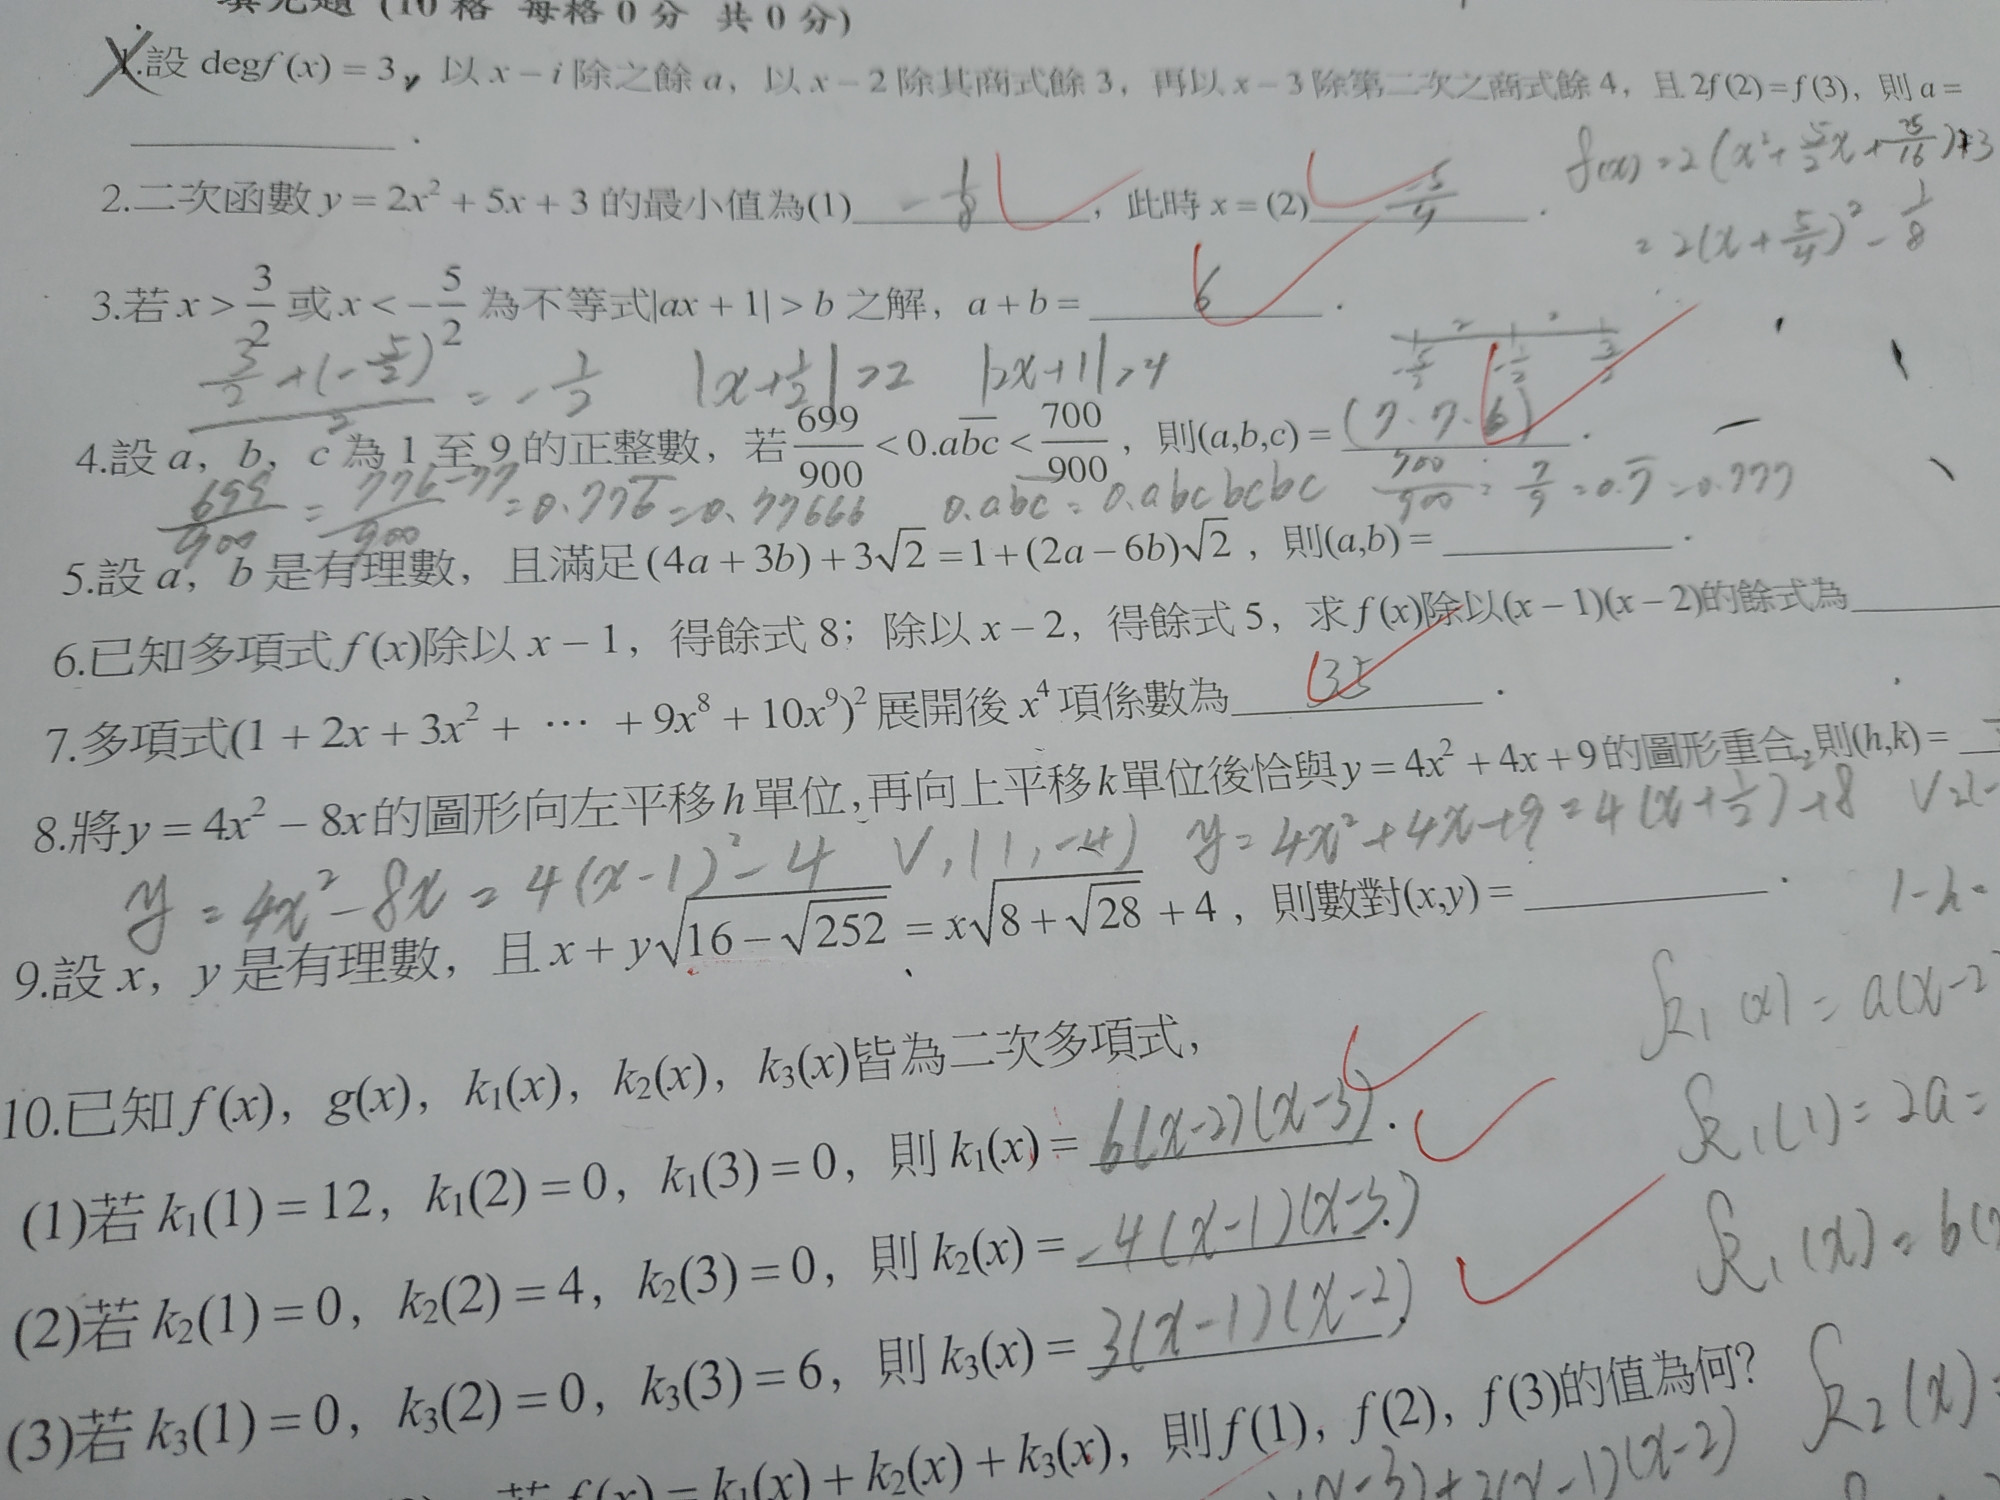 填充題 (10 格 每格 0 分 共 0 分)
1.設 degf(x) = 3，以 x − i 除之餘 a，以 x − 2 除其商式餘 3，再以 x − 3 除第二次之商式餘 4，且 2f(2) = f(3)，則 a =
________．
f(x) = 2(x² + 5/2 x + 25/16) + 3
2.二次函數 y = 2x² + 5x + 3 的最小值為(1) −1/8，此時 x = (2) −5/4．
= 2(x + 5/4)² − 1/8
3.若 x > 3/2 或 x < −5/2 為不等式|ax + 1| > b 之解，a + b = 6．
(3/2 + (−5/2))/2 = −1/2 |x + 1/2| > 2 |2x + 1| > 4
2 2
−5/2 −1/2 3/2
4.設 a，b，c 為 1 至 9 的正整數，若 699/900 < 0.a\overline{bc} < 700/900，則(a,b,c) = (7、7、6)．
699/900 = 776−77/900 = 0.77\overline{6} = 0.77666 0.a\overline{bc} = 0.abcbcbc 700/900 = 7/9 = 0.\overline{7} = 0.777
5.設 a，b 是有理數，且滿足 (4a + 3b) + 3√2 = 1 + (2a − 6b)√2，則(a,b) = ________．
6.已知多項式 f(x)除以 x − 1，得餘式 8；除以 x − 2，得餘式 5，求 f(x)除以(x − 1)(x − 2)的餘式為________
7.多項式(1 + 2x + 3x² + ⋯ + 9x⁸ + 10x⁹)² 展開後 x⁴ 項係數為 35．
8.將 y = 4x² − 8x 的圖形向左平移 h 單位，再向上平移 k 單位後恰與 y = 4x² + 4x + 9 的圖形重合，則(h,k) =
y = 4x² − 8x = 4(x − 1)² − 4 V₁(1, −4) y = 4x² + 4x + 9 = 4(x + 1/2)² + 8 V₂(−
1 − h =
9.設 x，y 是有理數，且 x + y√(16 − √252) = x√(8 + √28) + 4，則數對(x,y) = ________．
k₁(x) = a(x − 2
10.已知 f(x)，g(x)，k₁(x)，k₂(x)，k₃(x)皆為二次多項式，
k₁(1) = 2a =
(1)若 k₁(1) = 12，k₁(2) = 0，k₁(3) = 0，則 k₁(x) = 6(x−2)(x−3)．
k₁(x) = 6(
(2)若 k₂(1) = 0，k₂(2) = 4，k₂(3) = 0，則 k₂(x) = −4(x−1)(x−3)．
k₂(x) =
(3)若 k₃(1) = 0，k₃(2) = 0，k₃(3) = 6，則 k₃(x) = 3(x−1)(x−2)．
若 f(x) = k₁(x) + k₂(x) + k₃(x)，則 f(1)，f(2)，f(3)的值為何?
(x−3) + 3(x−1)(x−2)